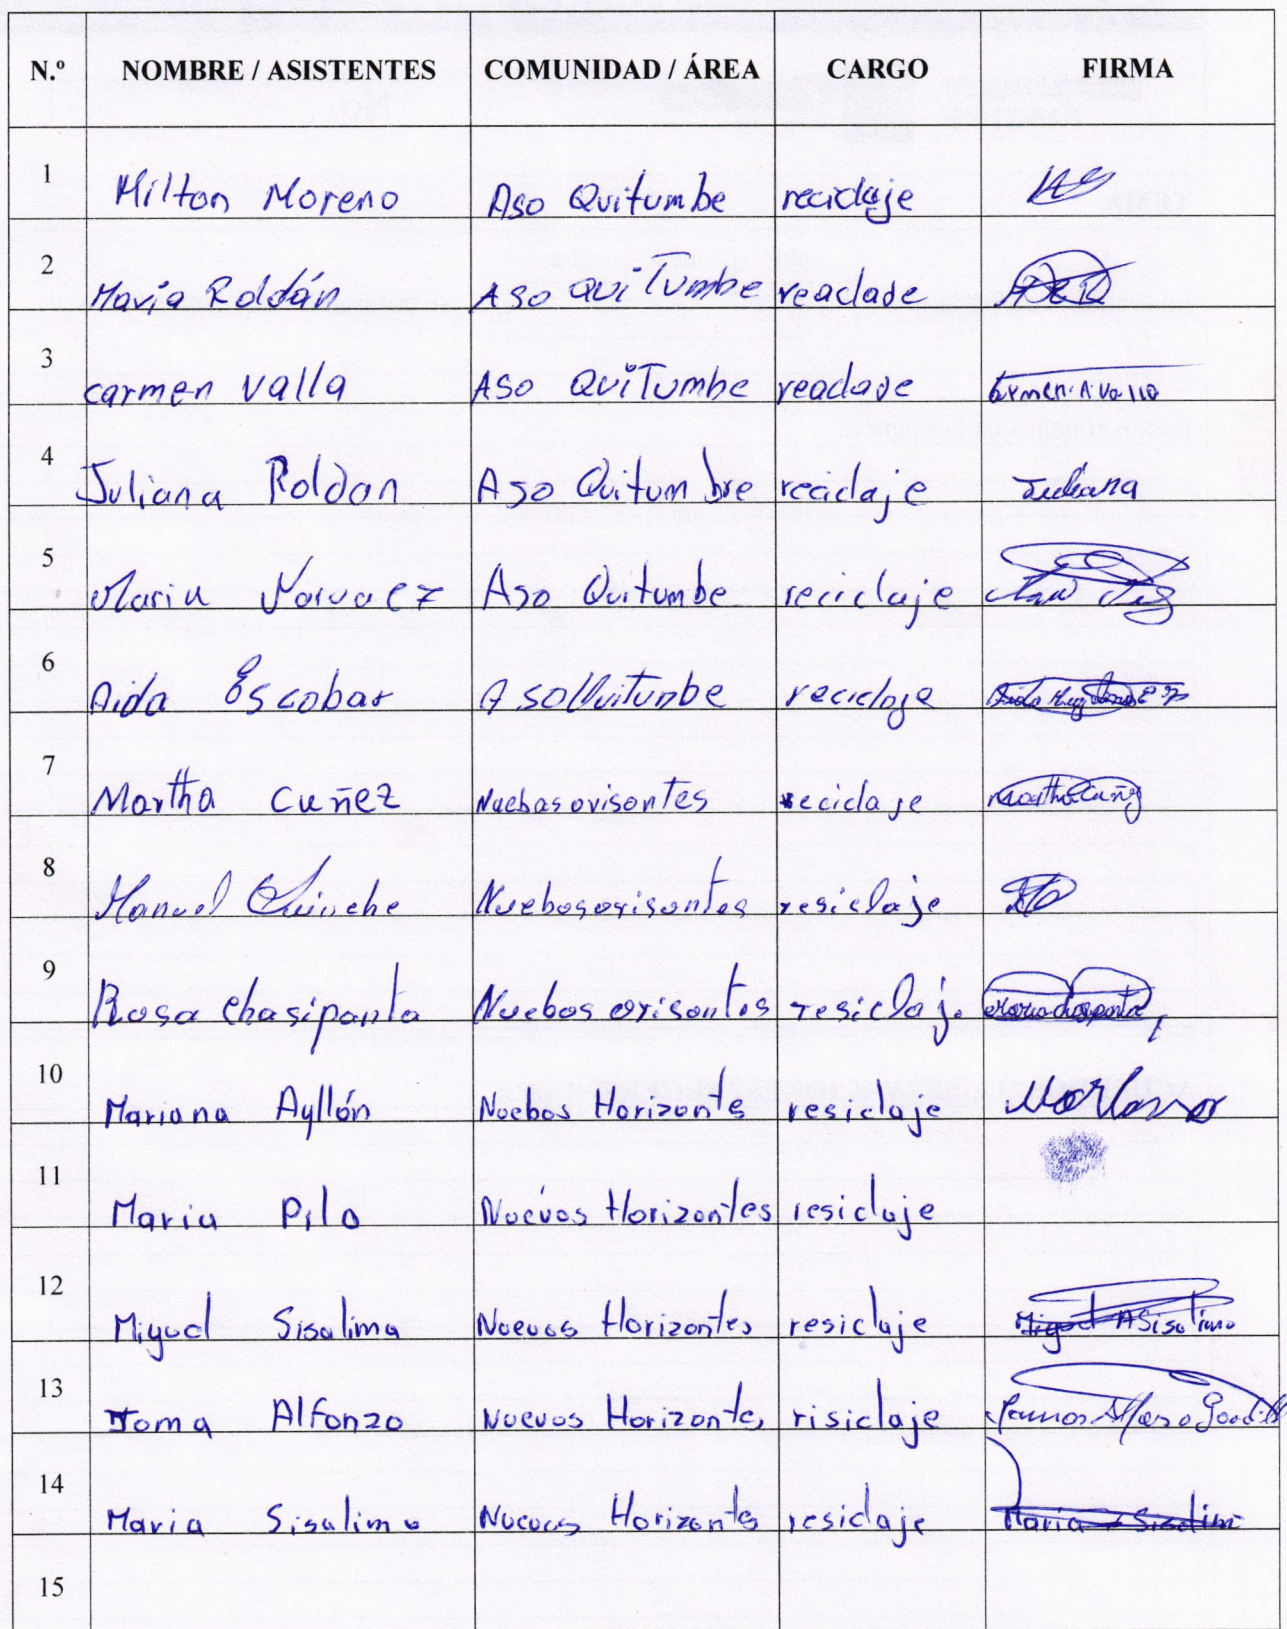 N.º NOMBRE / ASISTENTES COMUNIDAD / ÁREA CARGO FIRMA
1 Milton Moreno Aso Quitumbe reciclaje
2 Maria Roldán Aso QuiTumbe reaclade
3 carmen valla Aso QuiTumbe reaclade
4 Juliana Roldan Aso Quitumbre reciclaje Juliana
5 Maria Narvaez Aso Quitumbe reciclaje
6 Aida Escobar Aso Quitumbe reciclaje
7 Martha Cuñez Nuebasorisontes reciclaje Martha Cuñez
8 Manuel Quinche Nuebosorisontes resiclaje
9 Rosa Chasipanta Nuebos orisontes resiclaj.
10 Mariana Ayllón Nuebos Horizonts resiclaje
11 Maria Pila Nuevos Horizontes resiclaje
12 Miguel Sisalima Nuevos Horizontes resiclaje Miguel A Sisalima
13 Joma Alfonzo Nuevos Horizontes risiclaje
14 Maria Sisalima Nuevos Horizontes resiclaje Maria Sisalim
15